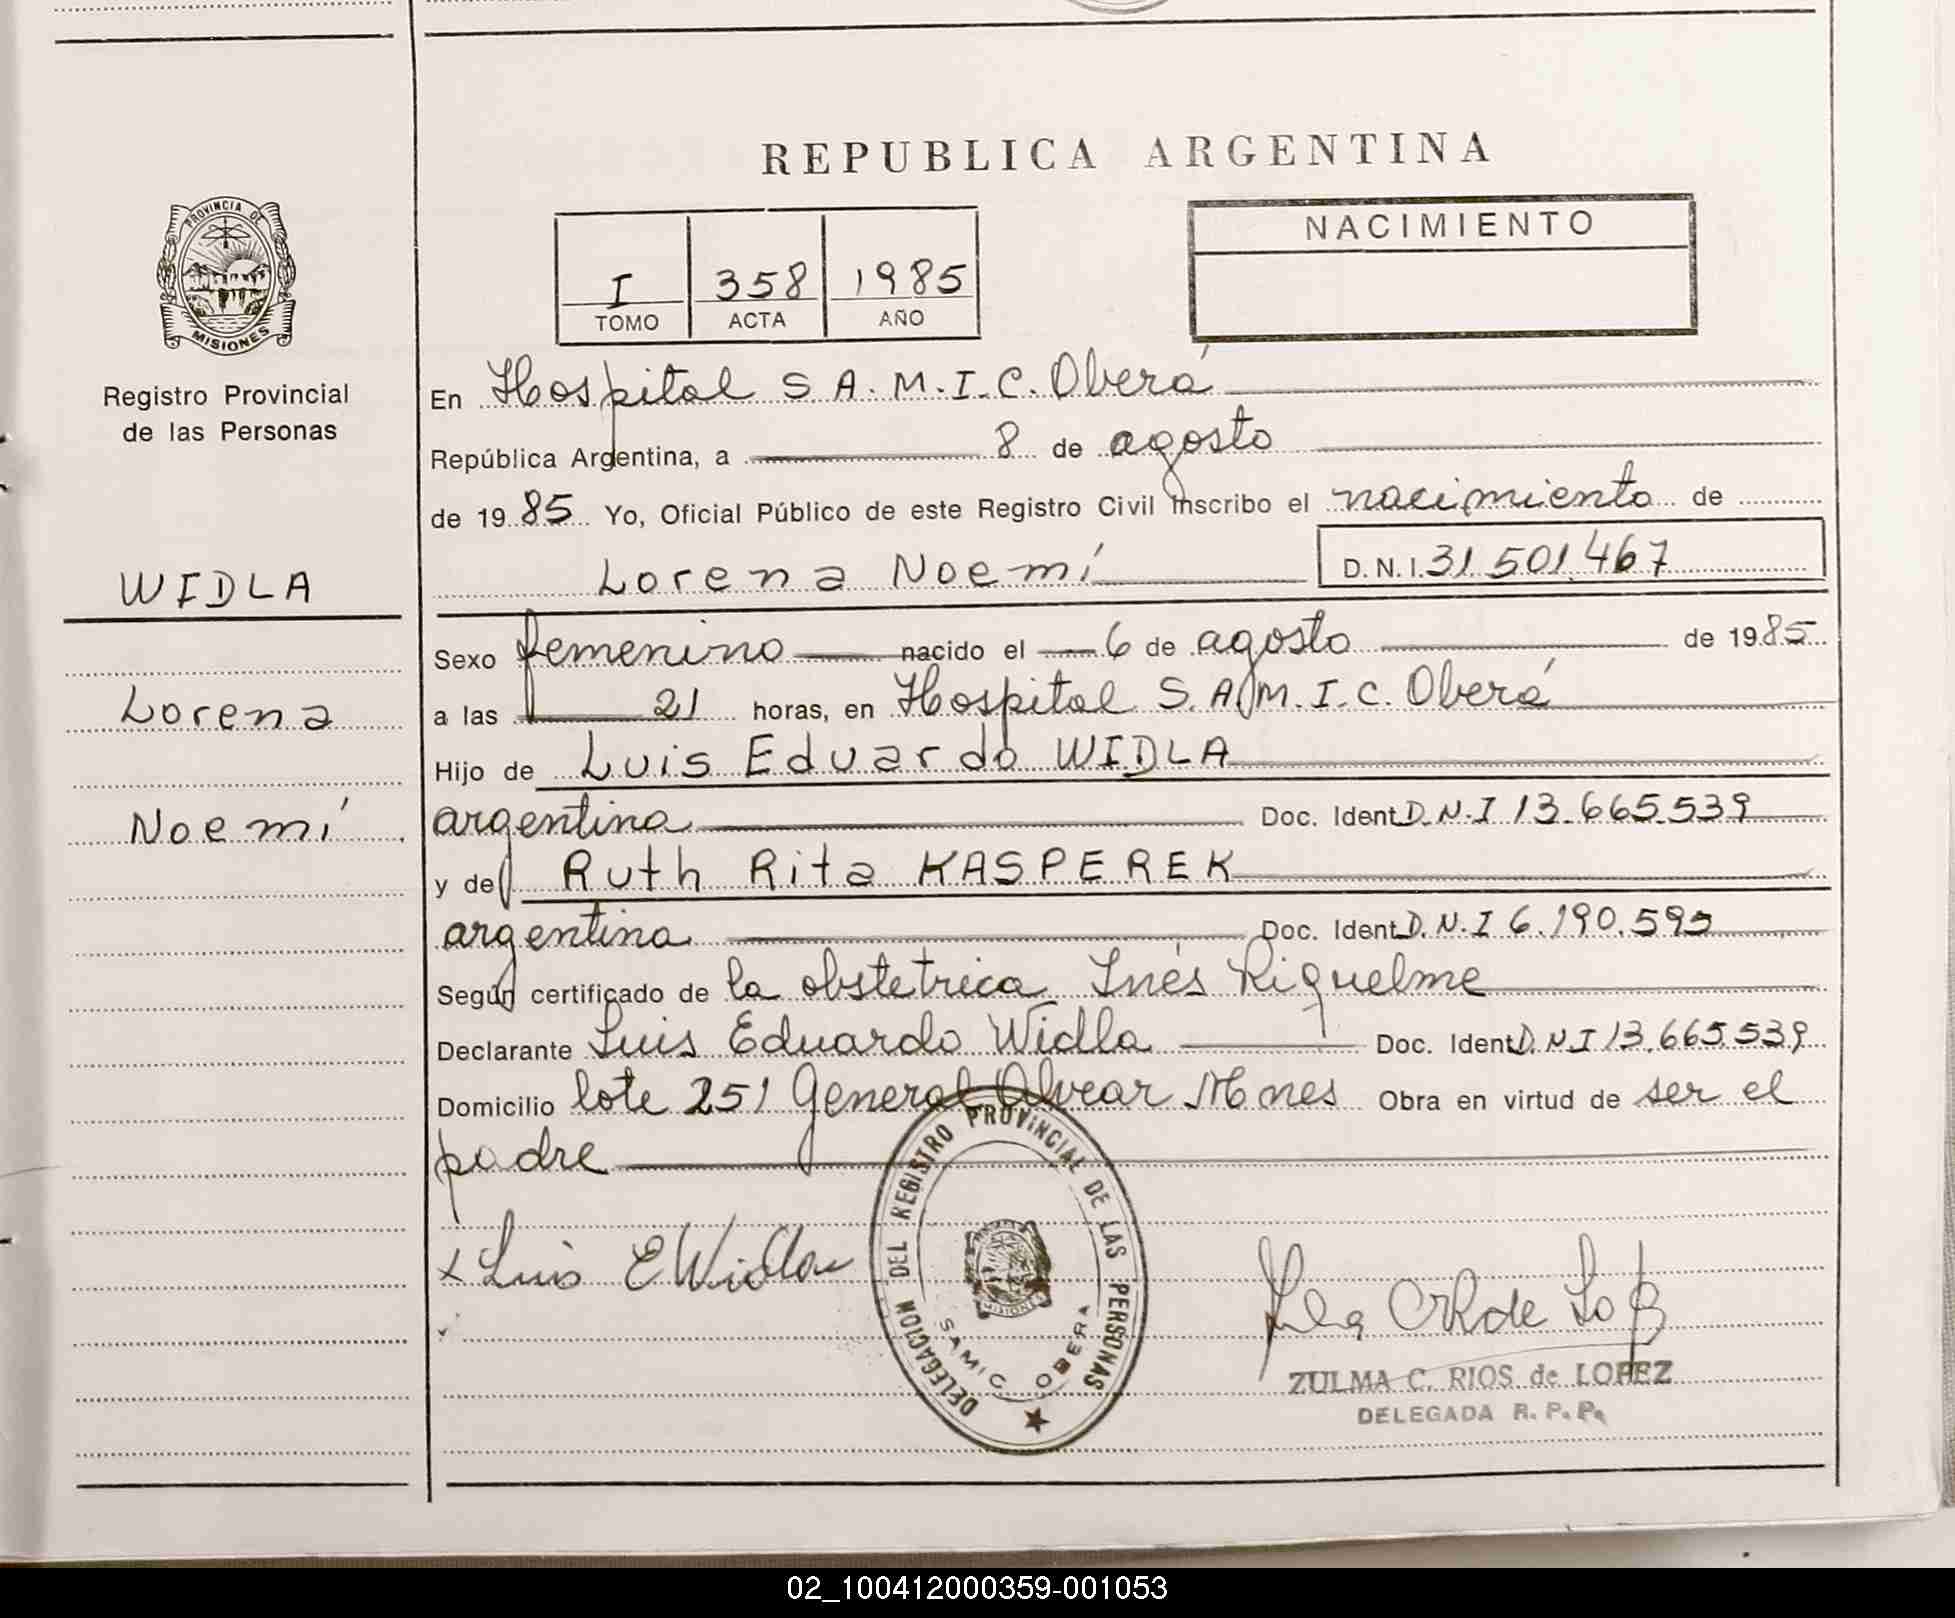 REPUBLICA ARGENTINA
PROVINCIA DE
MISIONES
Registro Provincial
de las Personas
WIDLA
Lorena
Noemí
I 358 1985
TOMO ACTA AÑO
NACIMIENTO
En Hospital S.A.M.I.C. Oberá
República Argentina, a 8 de agosto
de 1985 Yo, Oficial Público de este Registro Civil inscribo el nacimiento de
Lorena Noemí D.N.I. 31.501.467
Sexo femenino nacido el 6 de agosto de 1985
a las 21 horas, en Hospital S.A.M.I.C. Oberá
Hijo de Luis Eduardo WIDLA
argentino Doc. Ident D.N.I 13.665.539
y de Ruth Rita KASPEREK
argentina Doc. Ident D.N.I 6.190.595
Según certificado de la obstetrica Inés Riquelme
Declarante Luis Eduardo Widla Doc. Ident D.N.I 13.665.539
Domicilio lote 251 General Alvear Mnes Obra en virtud de ser el
padre
x Luis E Widla
DELEGACION DEL REGISTRO PROVINCIAL DE LAS PERSONAS
MISIONES
SAMIC OBERA
ZULMA C. RIOS de LOPEZ
DELEGADA R. P. P.
02_100412000359-001053